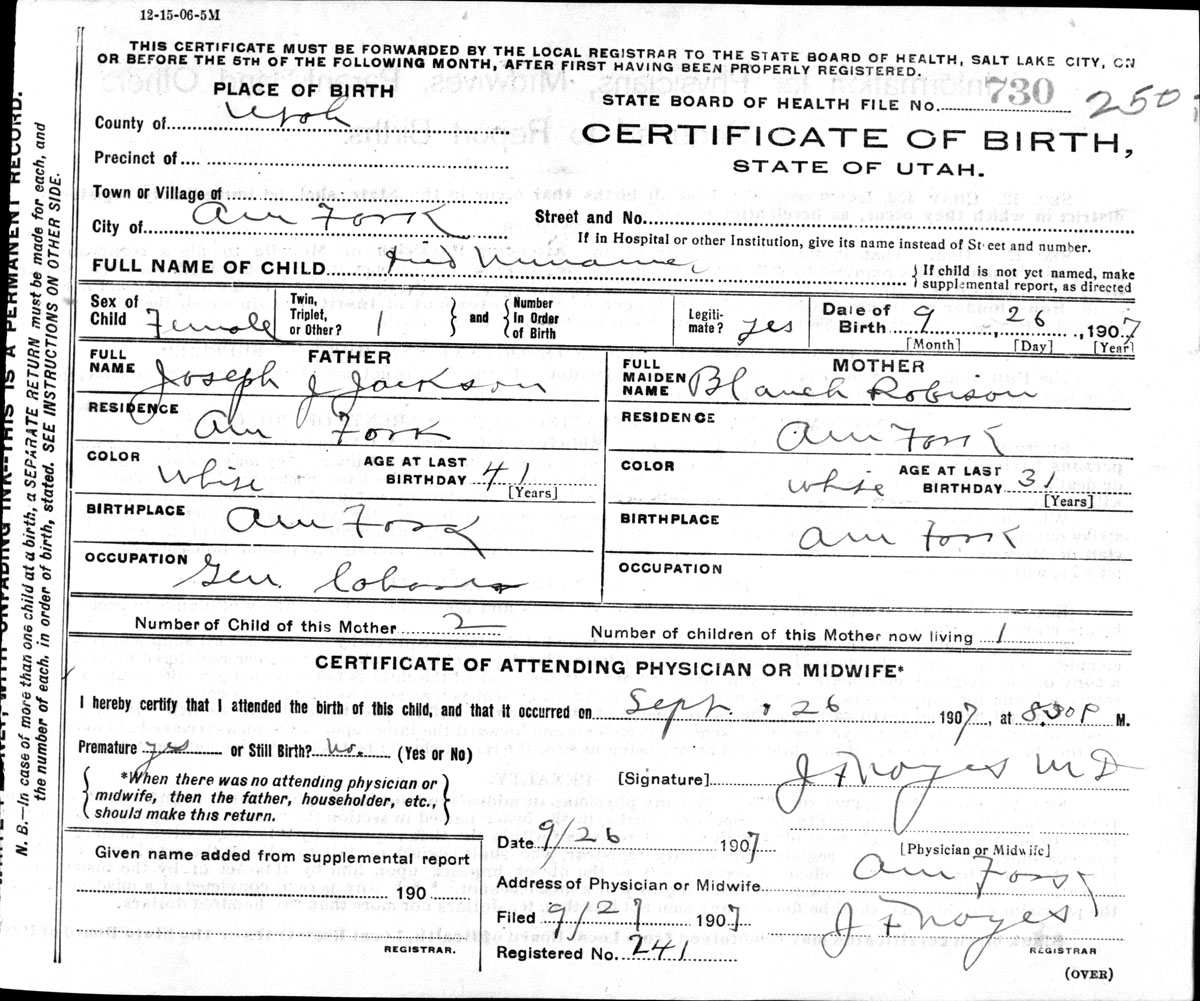 12-15-06-5M
THIS CERTIFICATE MUST BE FORWARDED BY THE LOCAL REGISTRAR TO THE STATE BOARD OF HEALTH, SALT LAKE CITY, ON
OR BEFORE THE 5TH OF THE FOLLOWING MONTH, AFTER FIRST HAVING BEEN PROPERLY REGISTERED.
PLACE OF BIRTH
STATE BOARD OF HEALTH FILE No. 730 250
County of Utah
CERTIFICATE OF BIRTH,
Precinct of
STATE OF UTAH.
Town or Village of
City of Am Fork
Street and No.
If in Hospital or other Institution, give its name instead of Street and number.
FULL NAME OF CHILD
If child is not yet named, make
supplemental report, as directed
Sex of Child Female
Twin, Triplet, or Other? 1
and
Number In Order of Birth
Legiti-mate? yes
Date of Birth 9 26, 1907
[Month] [Day] [Year]
FATHER
FULL NAME Joseph J Jackson
RESIDENCE Am Fork
COLOR White
AGE AT LAST BIRTHDAY 41
[Years]
BIRTHPLACE Am Fork
OCCUPATION Gen.
MOTHER
FULL MAIDEN NAME Blanch Robison
RESIDENCE Am Fork
COLOR White
AGE AT LAST BIRTHDAY 31
[Years]
BIRTHPLACE Am Fork
OCCUPATION
Number of Child of this Mother 2
Number of children of this Mother now living 1
CERTIFICATE OF ATTENDING PHYSICIAN OR MIDWIFE*
I hereby certify that I attended the birth of this child, and that it occurred on Sept. 26 1907, at 8.30 P M.
Premature yes or Still Birth? No. (Yes or No)
*When there was no attending physician or
midwife, then the father, householder, etc.,
should make this return.
[Signature] J F Noyes MD
[Physician or Midwife]
Date 9/26 1907
Given name added from supplemental report
190
REGISTRAR.
Address of Physician or Midwife Am Fork
Filed 9/27 1907 J F Noyes
REGISTRAR
Registered No. 241
(OVER)
WITH UNFADING INK—THIS IS A PERMANENT RECORD.
N. B.—In case of more than one child at a birth, a SEPARATE RETURN must be made for each, and
the number of each, in order of birth, stated. SEE INSTRUCTIONS ON OTHER SIDE.